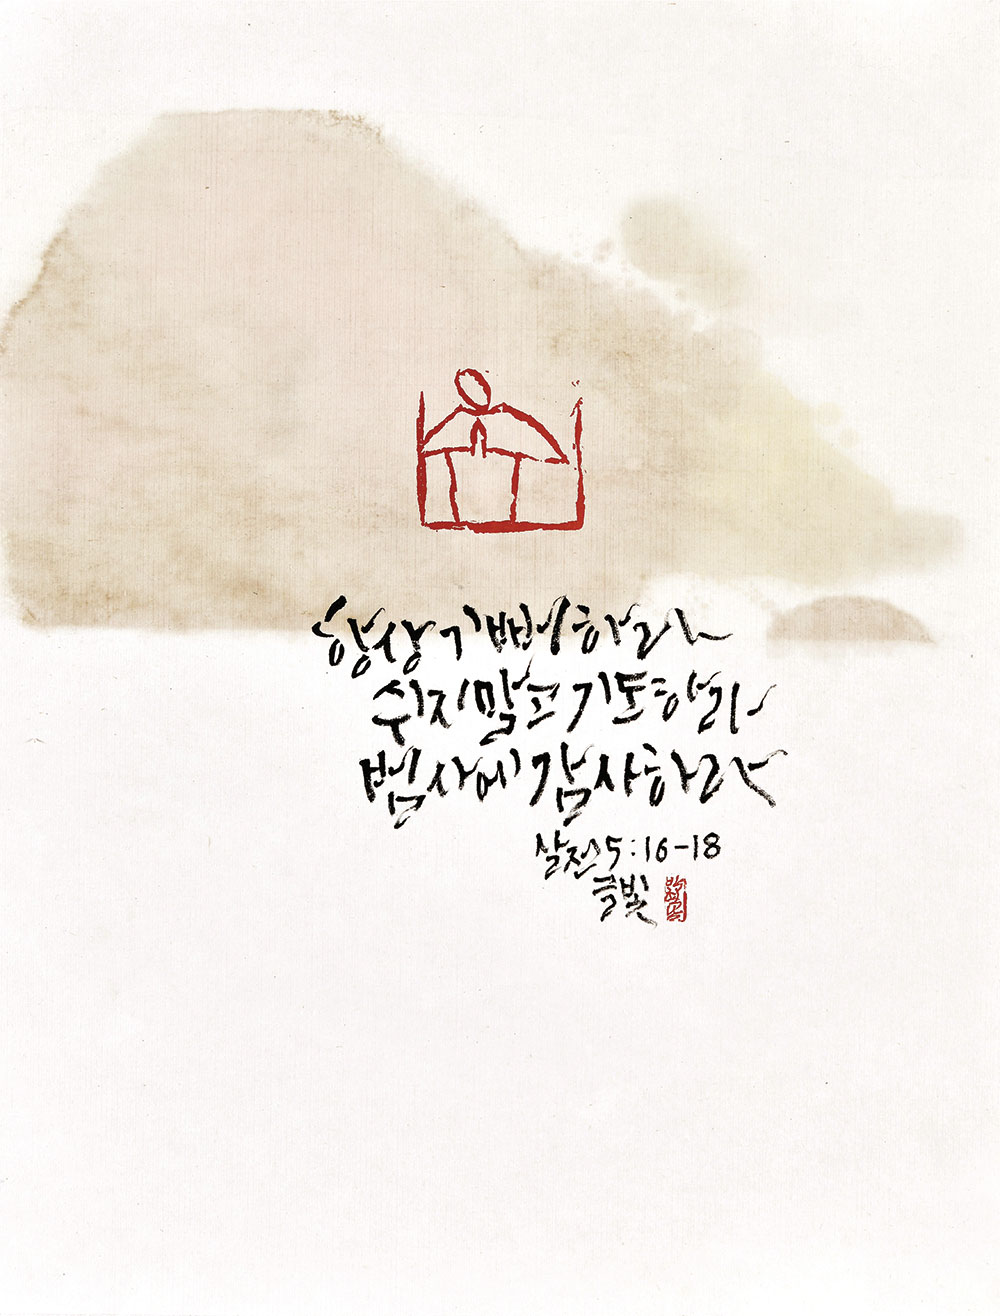 항상 기뻐하라
쉬지 말고 기도하라
범사에 감사하라
살전 5:16-18
글빛